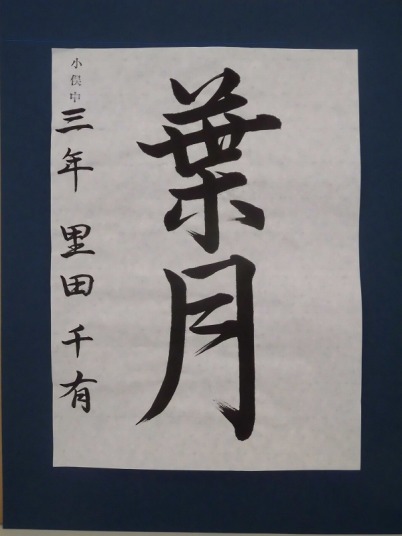 葉月
小俣中
三年 里田 千有